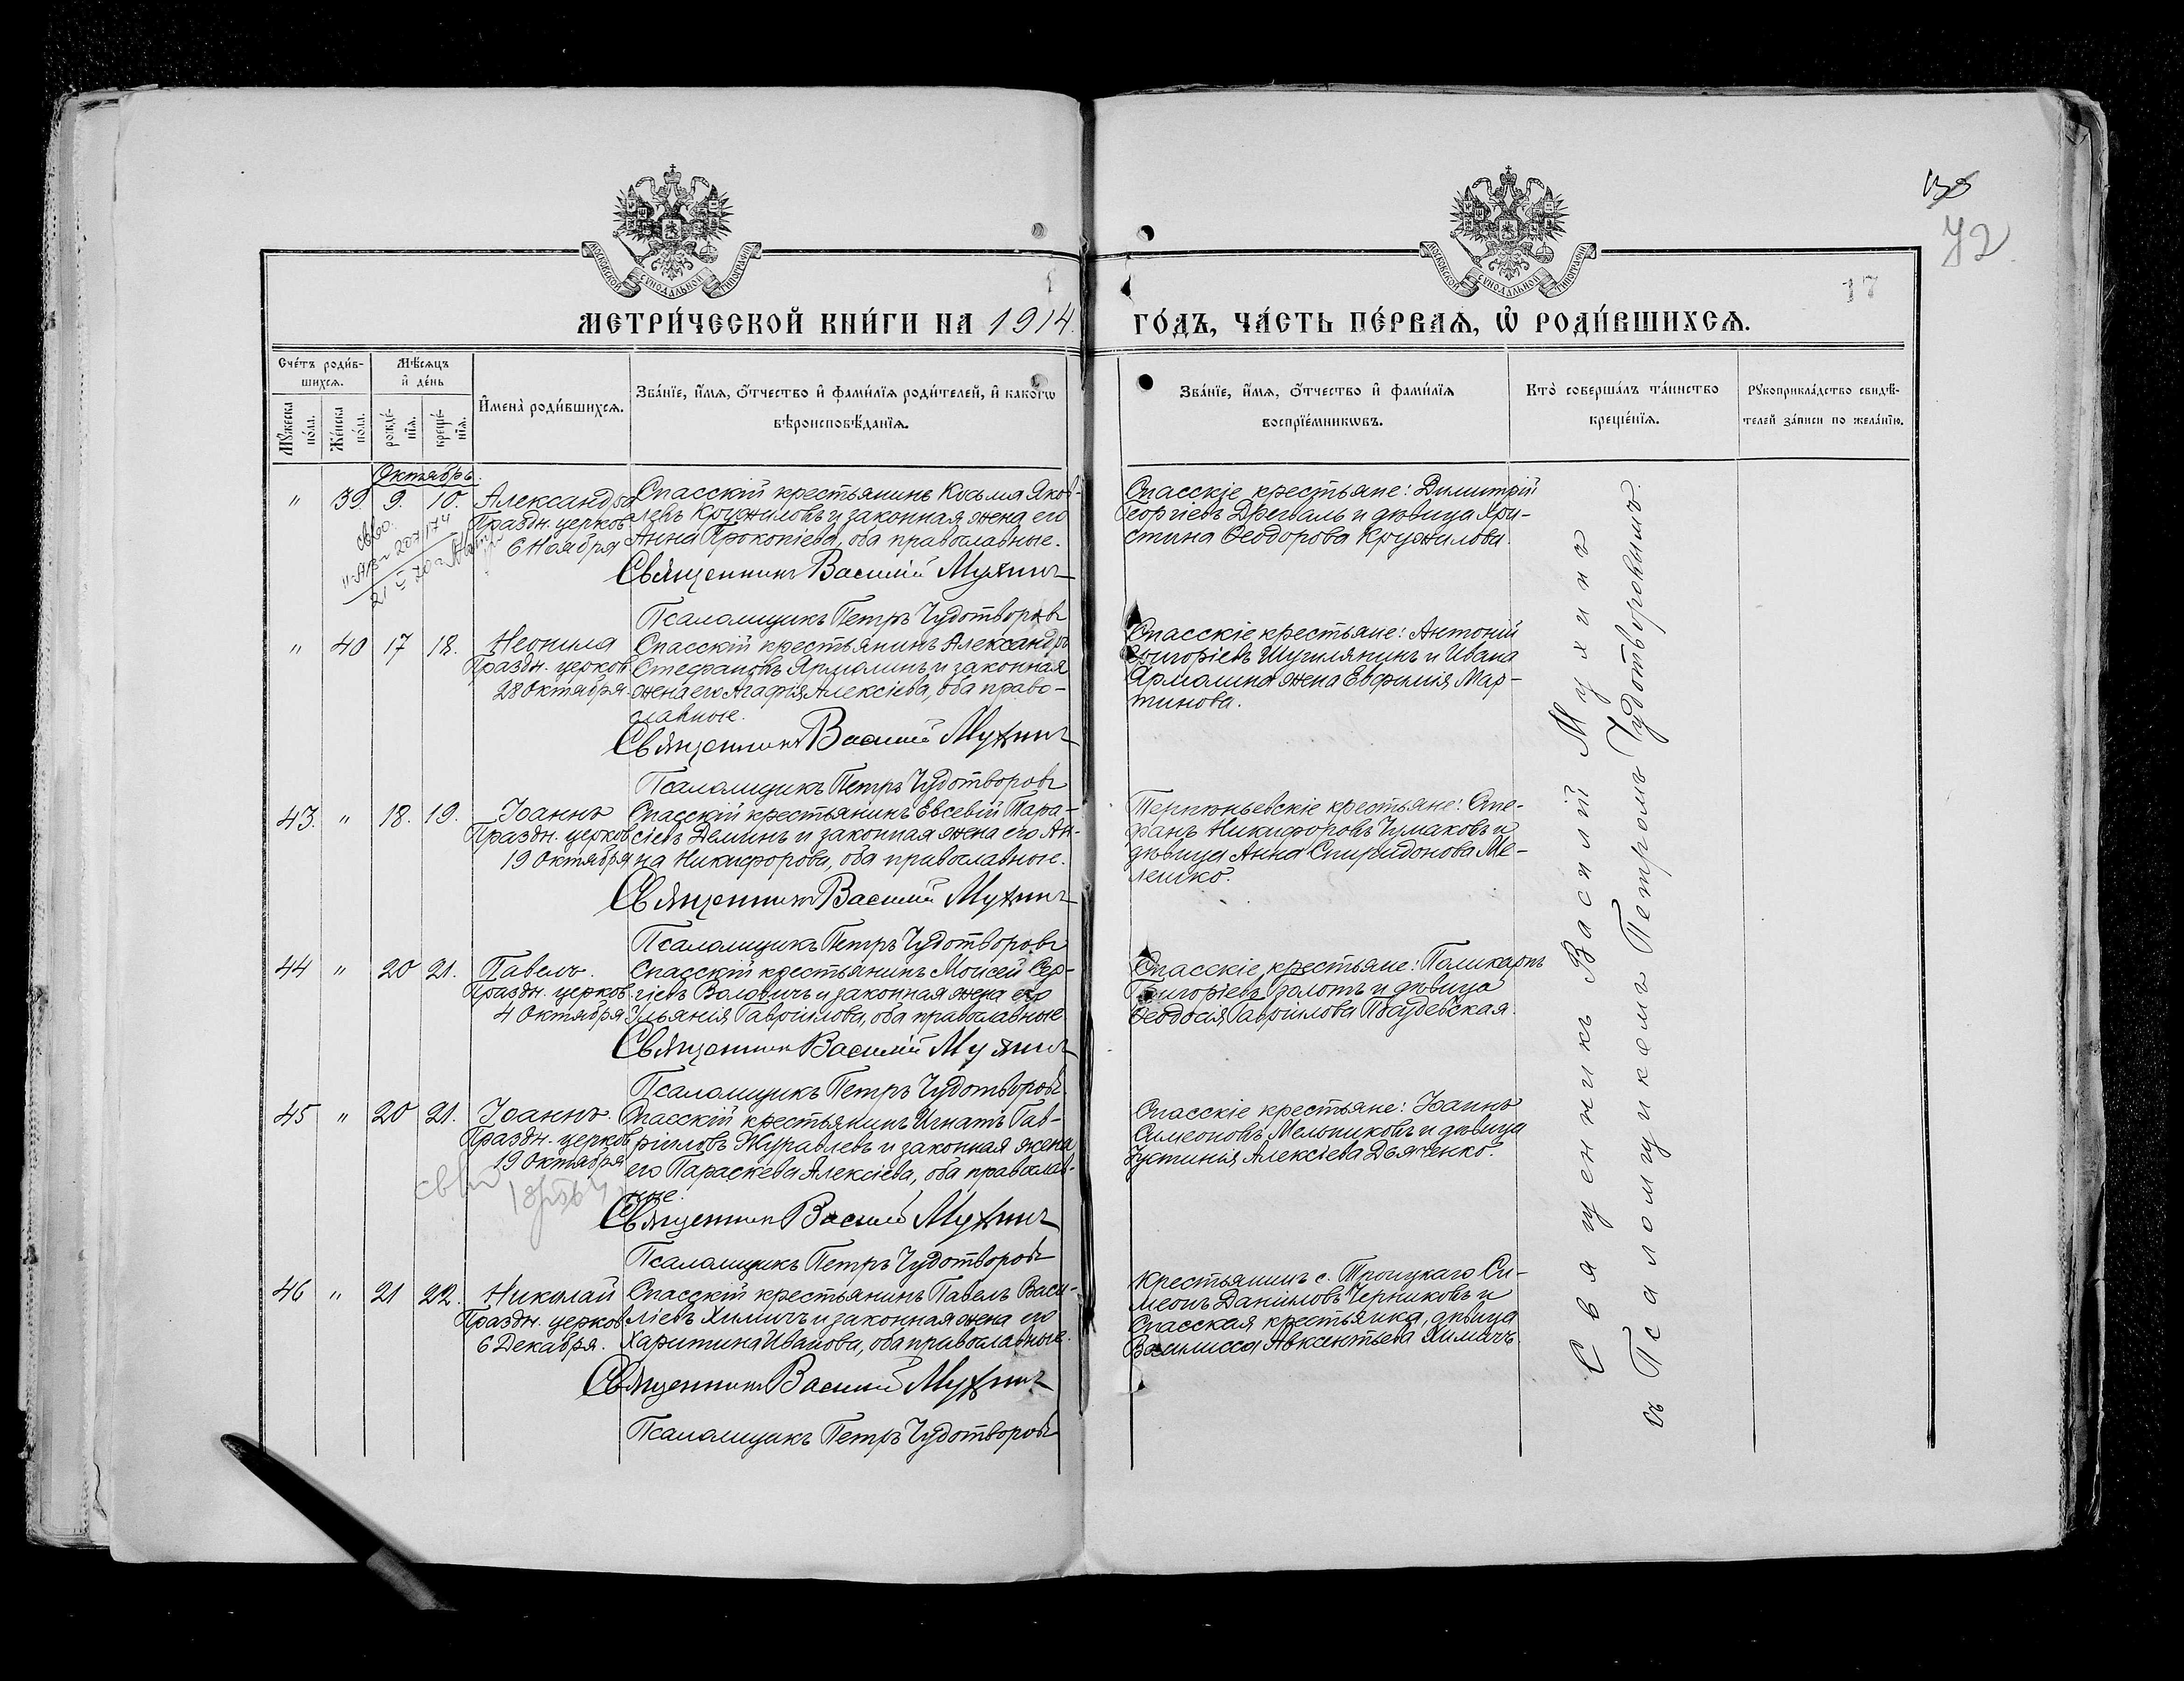 133
72
17
МОСКОВСКОЙ СѴНОДАЛЬНОЙ ТИПОГРАФІИ
МОСКОВСКОЙ СѴНОДАЛЬНОЙ ТИПОГРАФІИ
МЕТРИ́ЧЕСКОЙ КНИ́ГИ НА 1914.
ГО́ДЪ, ЧА́СТЬ ПЕ́РВАѦ, Ѡ҆ РОДИ́ВШИХСѦ.
Сче́тъ роди́в-
шихсѧ.
Мѣ́сѧцъ
и҆ де́нь
Мꙋ́жеска
по́ла.
Же́нска
по́ла.
рожде́-
нїѧ.
креще́-
нїѧ.
И҆мена̀ роди́вшихсѧ.
Зва́нїе, и҆́мѧ, ѻ҆́тчество и҆ фами́лїѧ роди́телей, и҆ како́гѡ
вѣроисповѣ́данїѧ.
Зва́нїе, и҆́мѧ, ѻ҆́тчество и҆ фами́лїѧ
воспрїе́мникѡвъ.
Кто̀ соверша́лъ та́инство
креще́нїѧ.
Рꙋкоприкла́дство свидѣ́-
телей за́писи по жела́нїю.
Октябрь.
" 39 9. 10. Александра
Праздн. церков
6 Ноября
Спасскій крестьянинъ Косьма Яков-
левъ Кружиловъ и законная жена его
Анна Прокопіева, оба православные.
Священникъ Василій Мухинъ
Псаломщикъ Петръ Чудотворовъ
Спасскіе крестьяне: Димитрій
Георгіевъ Дрегваль и дѣвица Хри-
стина Ѳеодорова Кружилова.
" 40 17 18. Неонила
Праздн. церков
28 Октября
Спасскій крестьянинъ Александръ
Стефановъ Ярмолинъ и законная
жена его Агафія Алексіева, оба право-
славные.
Священникъ Василій Мухинъ
Псаломщикъ Петръ Чудотворовъ
Спасскіе крестьяне: Антоній
Григоріевъ Шугилянинъ и Ивана
Ярмолина жена Евфимія Мар-
тинова.
43. " 18. 19. Іоаннъ
Праздн. церков
19 Октября
Спасскій крестьянинъ Евсевій Тара-
сіевъ Деминъ и законная жена его Ан-
на Никифорова, оба православные.
Священникъ Василій Мухинъ
Псаломщикъ Петръ Чудотворовъ
крестьяне: Сте-
фанъ Никифоровъ Чумаковъ и
дѣвица Анна Спиридонова Ме-
лешко.
44 " 20 21. Павелъ.
Праздн. церков
4 Октября
Спасскій крестьянинъ Моисей Сер-
гіевъ Воловичъ и законная жена его
Ульянія Гавріилова, оба православные
Священникъ Василій Мухинъ
Псаломщикъ Петръ Чудотворовъ
Спасскіе крестьяне: Поликарпъ
Григоріевъ и дѣвица
Ѳеодосія Гавріилова
45 " 20 21. Іоаннъ.
Праздн. церков
19 Октября
Спасскій крестьянинъ Игнатъ Гав-
ріиловъ Журавлевъ и законная жена
его Параскева Алексіева, оба православ-
ные.
Священникъ Василій Мухинъ
Псаломщикъ Петръ Чудотворовъ
Спасскіе крестьяне: Іоаннъ
Симеоновъ Мельниковъ и дѣвица
Іустинія Алексіева Дьяченко.
46 " 21 22. Николай
Праздн. церков
6 Декабря.
Спасскій крестьянинъ Павелъ Васи-
ліевъ Химичъ и законная жена его
Харитина Иванова, оба православные.
Священникъ Василій Мухинъ
Псаломщикъ Петръ Чудотворовъ
Крестьянинъ с. Троицкаго Си-
меонъ Даніиловъ Черниковъ и
Спасская крестьянка, дѣвица
Василисса Авксентьева Химичъ.
Священникъ Василій Мухинъ
съ Псаломщикомъ Петромъ Чудотворовымъ.